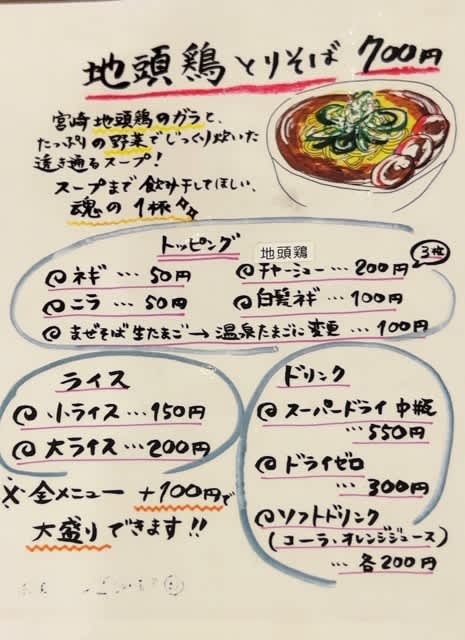 地頭鶏とりそば 700円
宮崎地頭鶏のガラと、
たっぷりの野菜でじっくり炊いた
透き通るスープ!
スープまで飲み干してほしい、
魂の1杯
トッピング
ネギ … 50円
地頭鶏
チャーシュー … 200円
3枚
ニラ … 50円
白髪ネギ … 100円
まぜそば生たまご → 温泉たまごに変更 … 100円
ライス
小ライス … 150円
大ライス … 200円
※全メニュー +100円で
大盛りできます!!
ドリンク
スーパードライ 中瓶
… 550円
ドライゼロ
… 300円
ソフトドリンク
(コーラ、オレンジジュース)
… 各200円